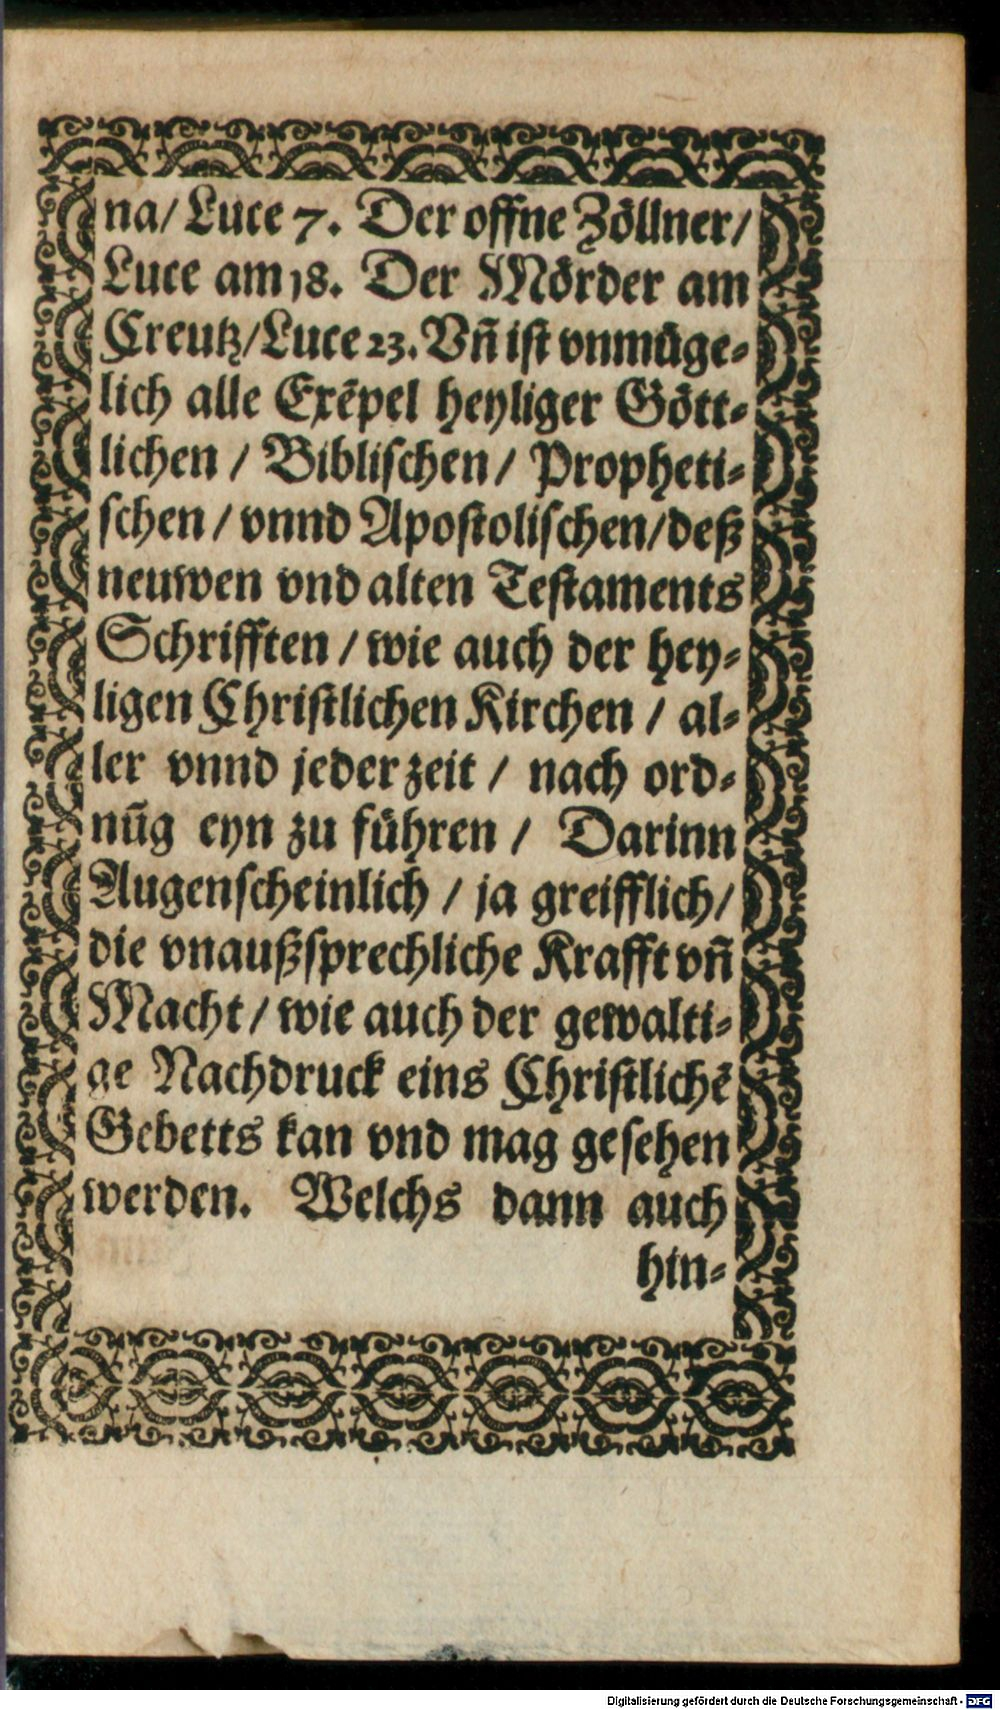 na/ Luce 7. Der offne Zöllner/
Luce am 18. Der Mörder am
Creutz/ Luce 23. Vñ ist vnmüge-
lich alle Exēpel heyliger Gött-
lichen / Biblischen / Propheti-
schen / vnnd Apostolischen / deß
neuwen vnd alten Testaments
Schrifften / wie auch der hey-
ligen Christlichen Kirchen / al-
ler vnnd jeder zeit / nach ord-
nūg eyn zu führen / Darinn
Augenscheinlich / ja greifflich/
die vnaußsprechliche Krafft vñ
Macht / wie auch der gewalti-
ge Nachdruck eins Christlichē
Gebetts kan vnd mag gesehen
werden. Welchs dann auch
hin-
Digitalisierung gefördert durch die Deutsche Forschungsgemeinschaft - DFG